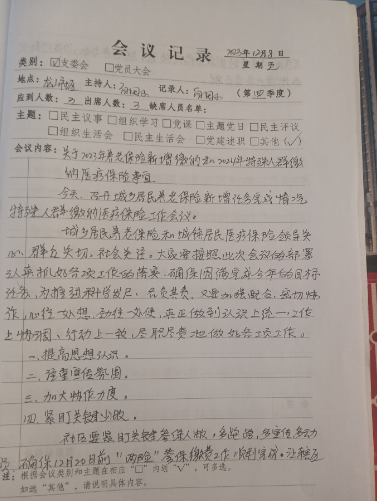 会议记录
2023年12月8日
星期五
类别：☑支委会 □党员大会
地点： 主持人： 记录人： （第四季度）
应到人数：五 出席人数：五 缺席人员名单：
主题：□民主议事 □组织学习 □党课 □主题党日 □民主评议
□组织生活会 □民主生活会 □党建述职 □其他(√)
会议内容：关于2023年养老保险新增缴纳和2024年特殊人群缴
纳医疗保险事宜
今天，召开城乡居民养老保险新增任务完成情况
特殊人群缴纳医疗保险工作会议。
城乡居民养老保险和城镇居民医疗保险领导关
心、群众关切、社会关注。大家要按照此次会议的部署
认真抓好各项工作的落实，确保圆满完成全年的目标
任务，为推动科学发展、各负其责，又要加强配合，密切协
作，心往一处想，劲往一处使，真正做到认识上统一、工作
上协调、行动上一致，尽职尽责地做好各项工作。
一、提高思想认识。
二、注重宣传氛围。
三、加大协作力度。
四、紧盯关键少数。
社区要紧盯关键参保人数，多宣传多动
员，确保12月20日前“两险”参保缴费工作顺利完成。
注：根据会议类别和主题在相应“□”内划“√”，可多选。
如选“其他”，请说明具体内容。